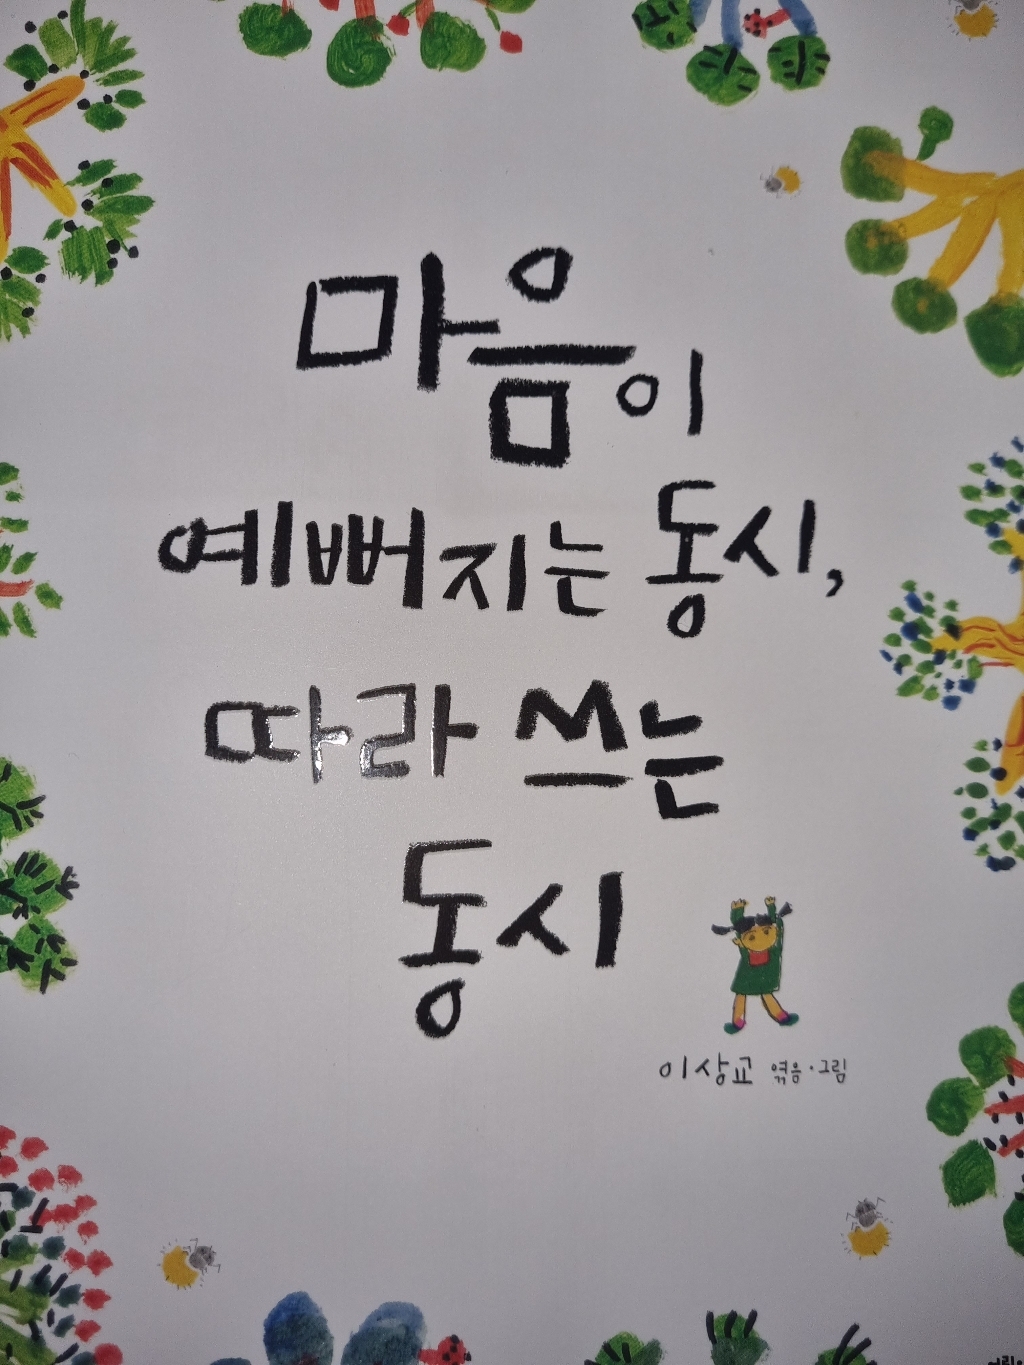 마음이
예뻐지는 동시,
따라 쓰는
동시
이상교 엮음·그림